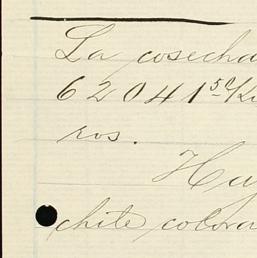 La cosecha
62041 50/Ki
ros.
Hay
chile colora